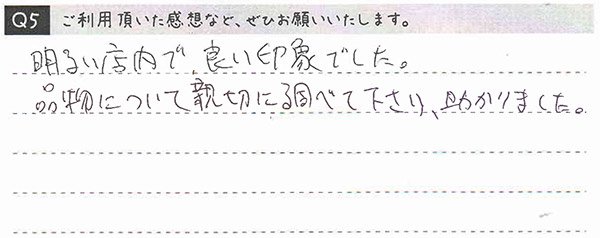 Q5 ご利用頂いた感想など、ぜひお願いいたします。
明るい店内で、良い印象でした。
品物について親切に調べて下さり、助かりました。